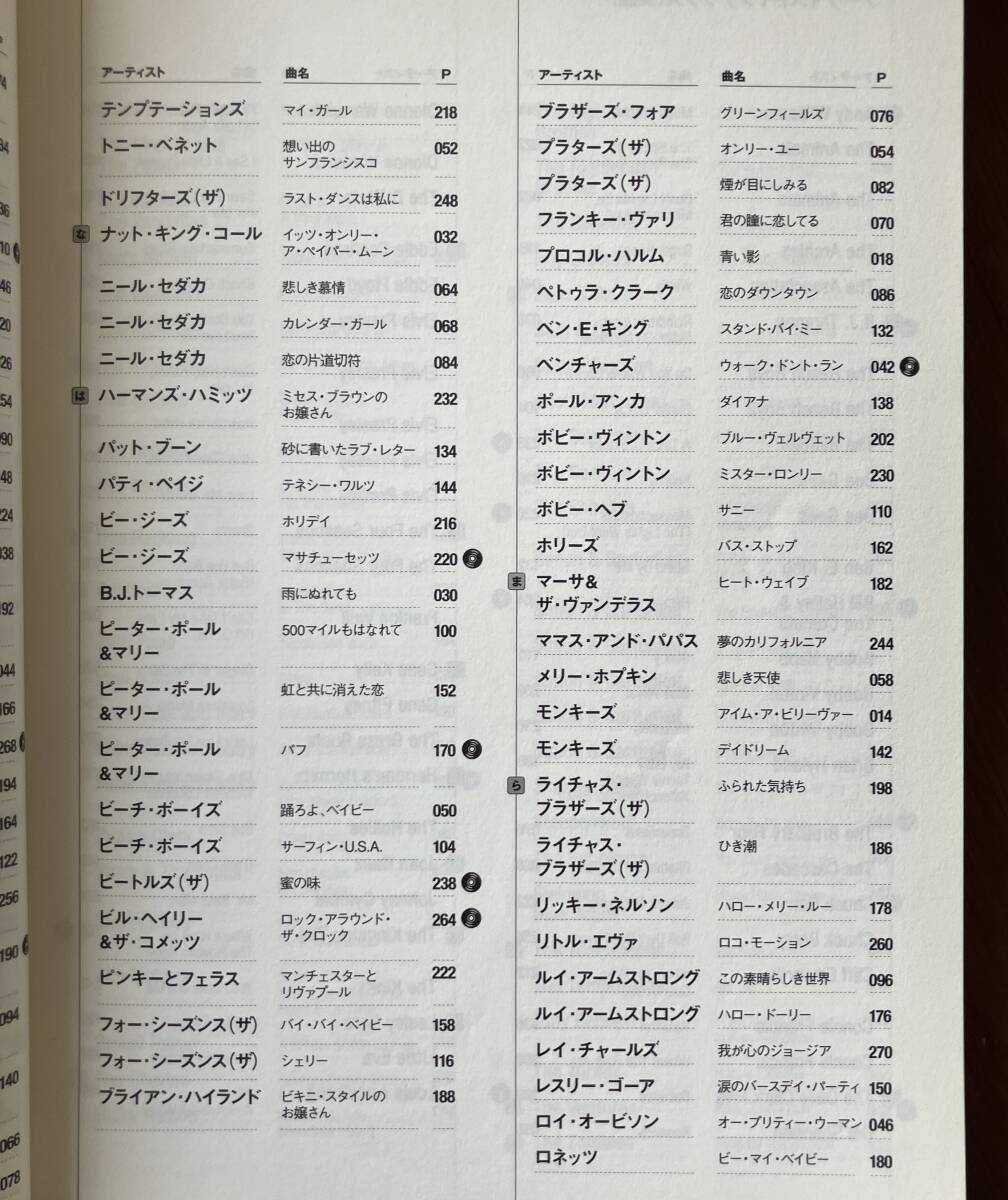 アーティスト 曲名 P
テンプテーションズ マイ・ガール 218
トニー・ベネット 想い出の
サンフランシスコ 052
ドリフターズ(ザ) ラスト・ダンスは私に 248
な ナット・キング・コール イッツ・オンリー・
ア・ペイパー・ムーン 032
ニール・セダカ 悲しき慕情 064
ニール・セダカ カレンダー・ガール 068
ニール・セダカ 恋の片道切符 084
は ハーマンズ・ハミッツ ミセス・ブラウンの
お嬢さん 232
パット・ブーン 砂に書いたラブ・レター 134
パティ・ペイジ テネシー・ワルツ 144
ビー・ジーズ ホリデイ 216
ビー・ジーズ マサチューセッツ 220
B.J.トーマス 雨にぬれても 030
ピーター・ポール 500マイルもはなれて 100
&マリー
ピーター・ポール 虹と共に消えた恋 152
&マリー
ピーター・ポール パフ 170
&マリー
ビーチ・ボーイズ 踊ろよ、ベイビー 050
ビーチ・ボーイズ サーフィン・U.S.A. 104
ビートルズ(ザ) 蜜の味 238
ビル・ヘイリー ロック・アラウンド・ 264
&ザ・コメッツ ザ・クロック
ピンキーとフェラス マンチェスターと 222
リヴァプール
フォー・シーズンス(ザ) バイ・バイ・ベイビー 158
フォー・シーズンス(ザ) シェリー 116
ブライアン・ハイランド ビキニ・スタイルの 188
お嬢さん
アーティスト 曲名 P
ブラザーズ・フォア グリーンフィールズ 076
プラターズ(ザ) オンリー・ユー 054
プラターズ(ザ) 煙が目にしみる 082
フランキー・ヴァリ 君の瞳に恋してる 070
プロコル・ハルム 青い影 018
ペトゥラ・クラーク 恋のダウンタウン 086
ベン・E・キング スタンド・バイ・ミー 132
ベンチャーズ ウォーク・ドント・ラン 042
ポール・アンカ ダイアナ 138
ボビー・ヴィントン ブルー・ヴェルヴェット 202
ボビー・ヴィントン ミスター・ロンリー 230
ボビー・ヘブ サニー 110
ホリーズ バス・ストップ 162
ま マーサ& ヒート・ウェイブ 182
ザ・ヴァンデラス
ママス・アンド・パパス 夢のカリフォルニア 244
メリー・ホプキン 悲しき天使 058
モンキーズ アイム・ア・ビリーヴァー 014
モンキーズ デイドリーム 142
ら ライチャス・ ふられた気持ち 198
ブラザーズ(ザ)
ライチャス・ ひき潮 186
ブラザーズ(ザ)
リッキー・ネルソン ハロー・メリー・ルー 178
リトル・エヴァ ロコ・モーション 260
ルイ・アームストロング この素晴らしき世界 096
ルイ・アームストロング ハロー・ドーリー 176
レイ・チャールズ 我が心のジョージア 270
レスリー・ゴーア 涙のバースデイ・パーティ 150
ロイ・オービソン オー・プリティー・ウーマン 046
ロネッツ ビー・マイ・ベイビー 180